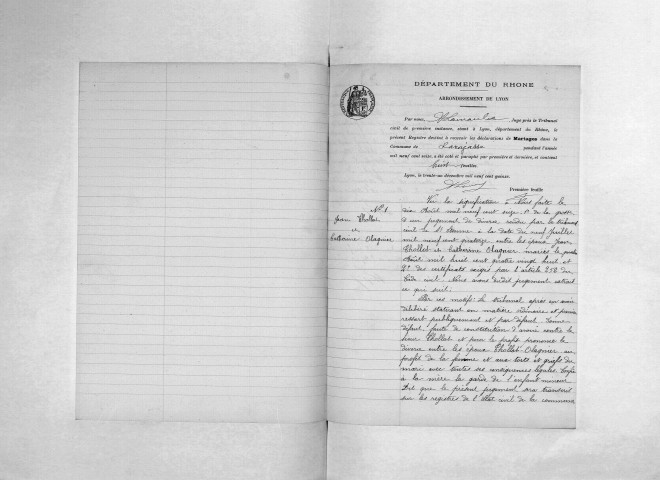 DÉPARTEMENT DU RHONE
ARRONDISSEMENT DE LYON
Par nous, juge près le Tribunal
civil de première instance, séant à Lyon, département du Rhône, le
présent Registre destiné à recevoir les déclarations de Mariages dans la
Commune de Larajasse pendant l'année
mil neuf cent seize, a été coté et paraphé par première et dernière, et contient
huit feuillets.
Lyon, le trente-un décembre mil neuf cent quinze.
Première feuille
N° 1
Jean Thollet
et
Catherine Olagnier
Vu la signification à Nous faite le
dix Août mil neuf cent seize 1° de la grosse
d'un jugement de divorce rendu par le tribunal
civil de St Etienne à la date du neuf Juillet
mil neuf cent quatorze entre les époux Jean
Thollet et Catherine Olagnier mariés le
Août mil huit cent quatre vingt huit et
2° des certificats exigés par l'article 252 du
Code civil; Nous avons dudit jugement extrait
ce qui suit:
Par ces motifs: Le tribunal après en avoir
délibéré statuant en matière ordinaire et premier
ressort publiquement et par défaut. Donne
défaut faute de constitution d'avoué contre le
sieur Thollet et pour le profit prononce le
divorce entre les époux Thollet-Olagnier au
profit de la femme et aux torts et griefs du
mari avec toutes ses conséquences légales. Confie
à la mère la garde de l'enfant mineur
Dit que le présent jugement sera transcrit
sur les registres de l'état civil de la commune